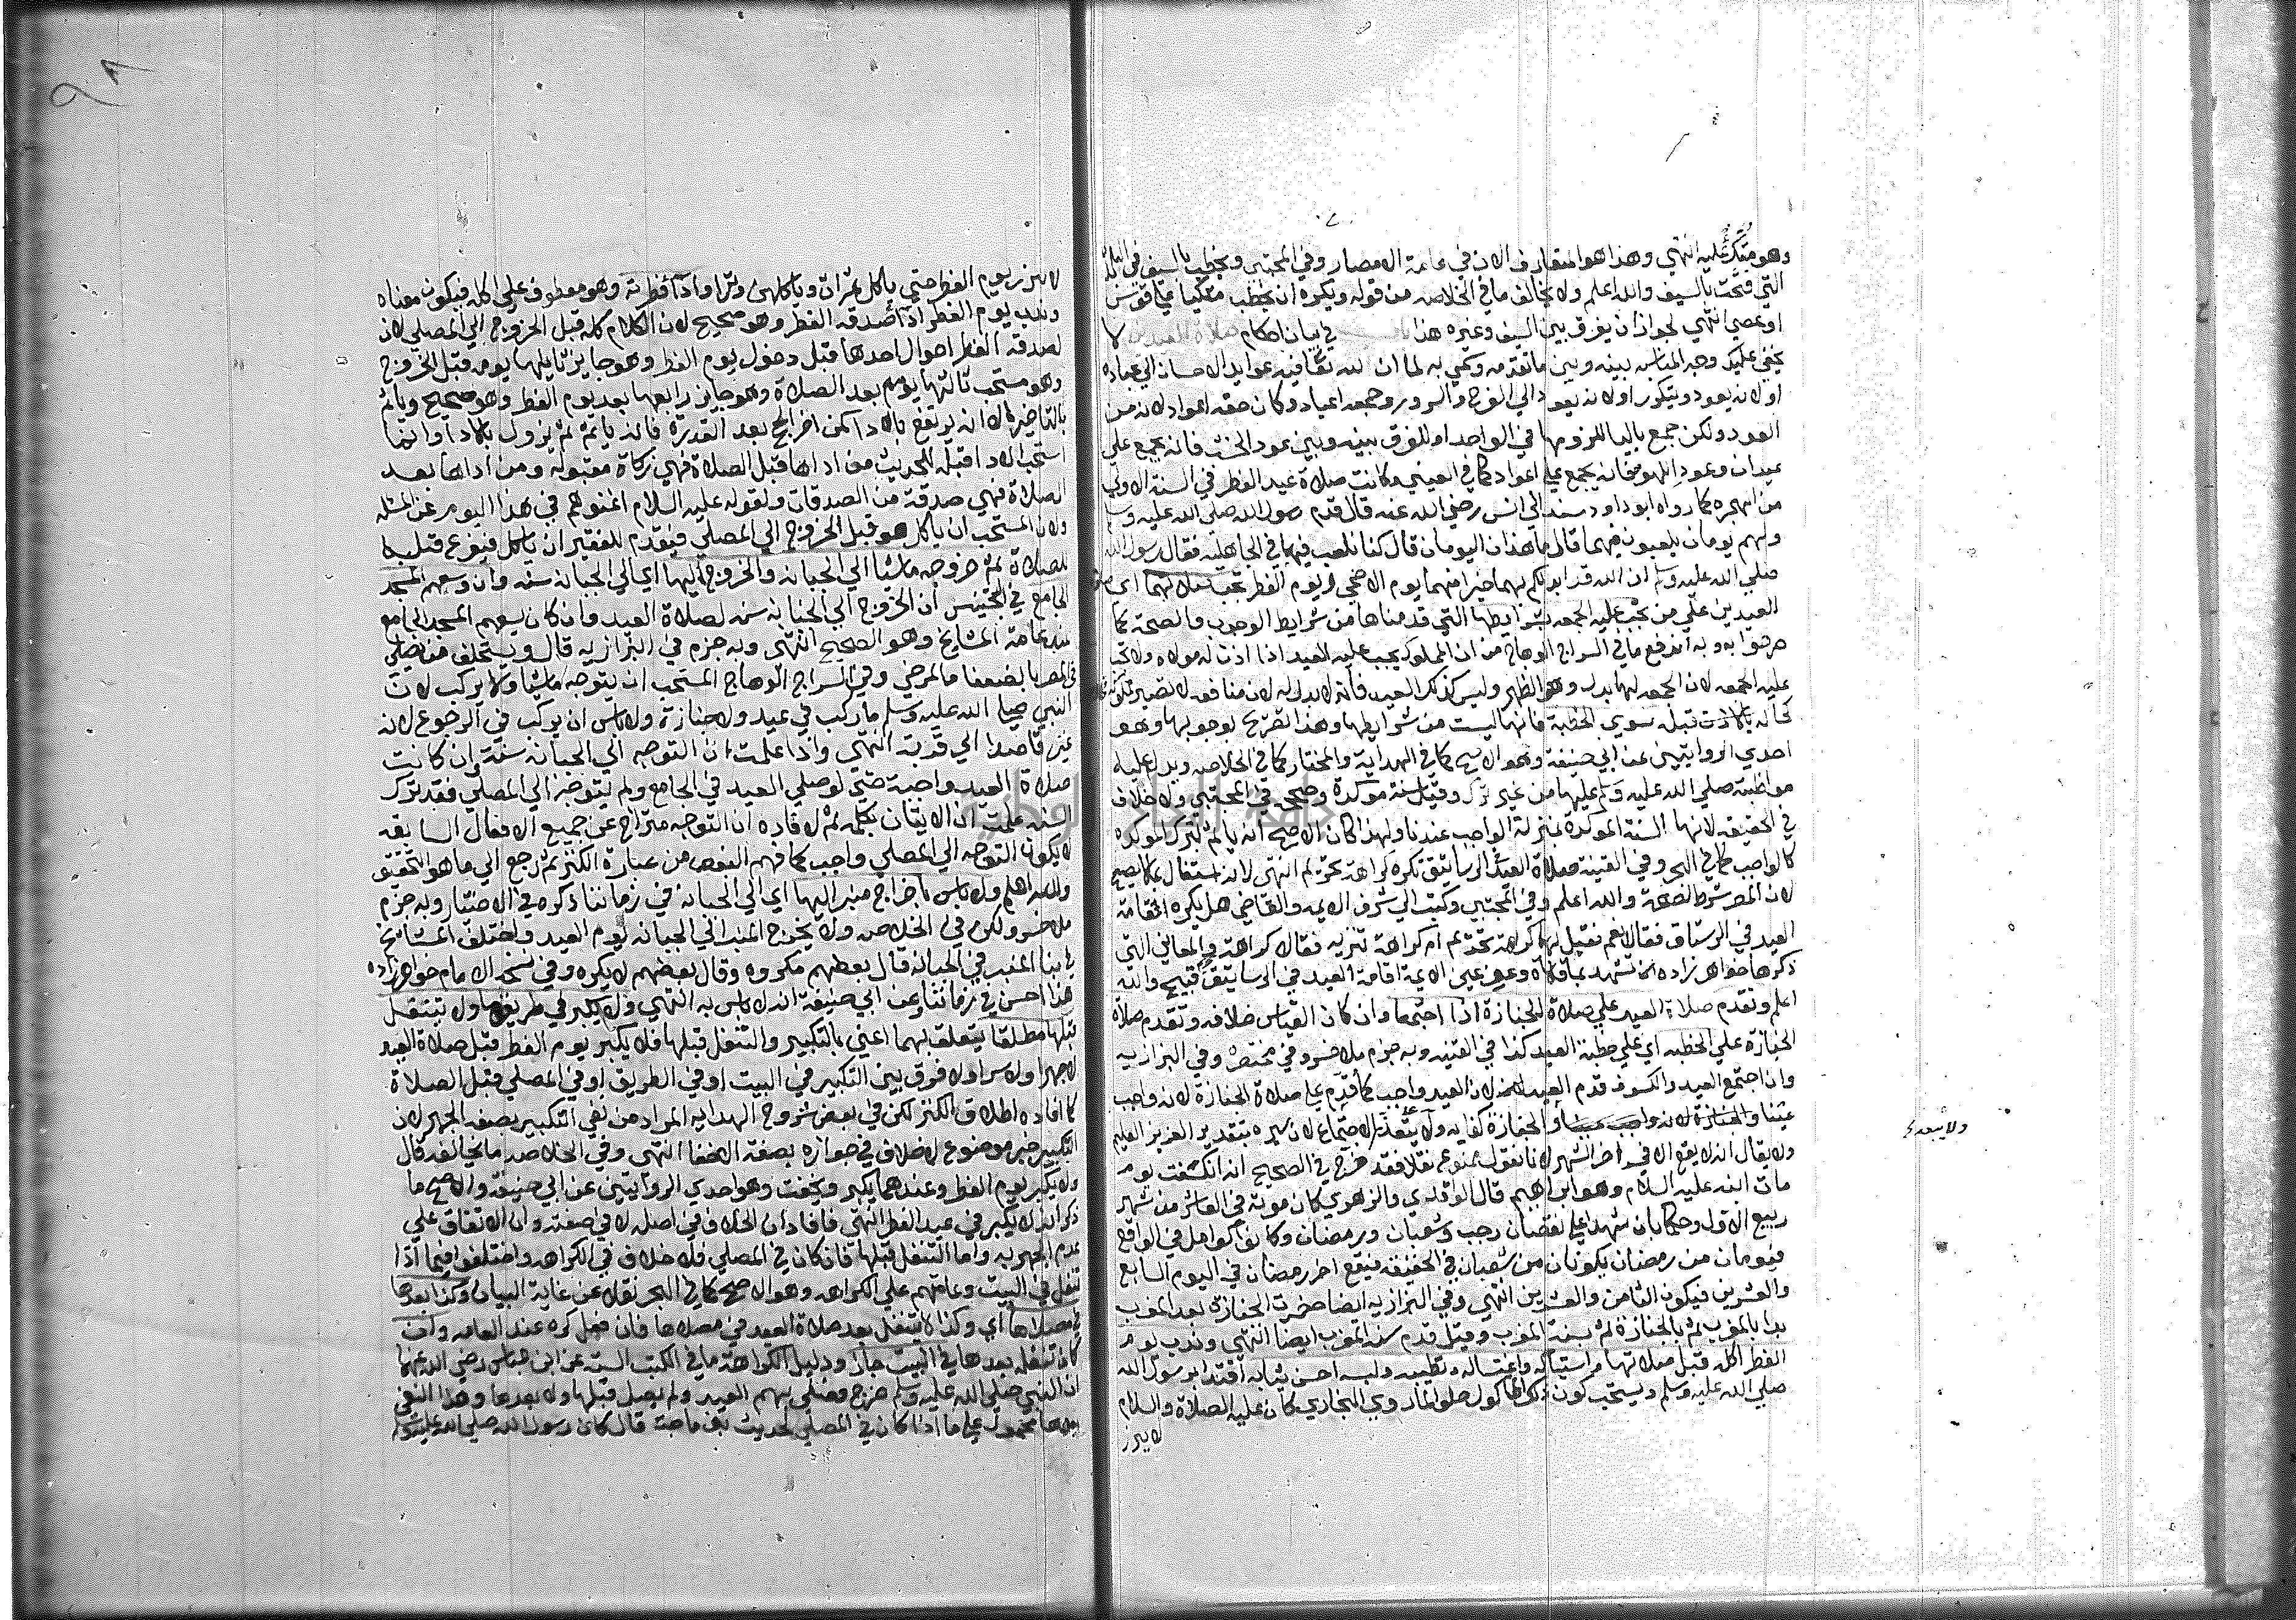 وهو متكئ عليه انتهي وهذا هو المتعارف الان في عامة الامصار وفي المجتبي ويخطب بالسيف في البلدة
التي فتحت بالسيف والله اعلم ولا يخالف ما في الخلاصه من قوله ويكره ان يخطب متكيا علي قوس
او عصي انتهي لجواز ان يفرق بين السيف وغيره هذا باب في بيان احكام صلاة العيدين لا
يخفي عليك وجه المناسبه بينه وبين ما تقدمه وسمي به لما ان لله تعا فيه عوايد الاحسان الي عباده
او لانه يعود ويتكرر او لانه يعود الي الفرح والسرور وجمعه اعياد وكان حقه اعواد لانه من
العود ولكن جمع باليا للزومها في الواحد او للفرق بينه وبين عود الخشب فانه يجمع علي
عيدان وعود اللهو فانه يجمع علي اعواد كما في العيني وكانت صلاة عيد الفطر في السنة الاولي
من الهجره كما رواه ابو داود مسندا الي انس رضي الله عنه قال قدم رسول الله صلي الله عليه وسلم
ولهم يومان يلعبون فيهما قال ما هذان اليومان قال كنا نلعب فيهما في الجاهليه فقال رسول الله
صلي الله عليه وسلم ان الله قد ابدلكم بهما خيرا منهما يوم الاضحي ويوم الفطر تجب صلاتهما اي صلاة
العيدين علي من تجب عليه الجمعه بشرايطها التي قدمناها من شرايط الوجوب والصحة كما
صرحوا به وبه اندفع ما في السراج الوهاج من ان المملوك يجب عليه العيد اذا اذن له مولاه ولا تجب
عليه الجمعه لان الجمعه لها بدل وهو الظهر وليس كذلك العيد فانه لا بدل له لان منافعه لا تصير مملوكة
كحاله بالاذن قبله سوي الخطبة فانها ليست من شرايطها وهذا تصريح بوجوبها وهو
احدي الروايتين عن ابي حنيفة وهو الاصح كما في الهداية والمختار كما في الخلاصه ويدل عليه
مواظبته صلي الله عليه وسلم عليها من غير ترك وقيل سنة موكدة وصححه في المجتبي ولا خلاف
في الحقيقه لانها السنة الموكدة بمنزلة الواجب عندنا ولهذا كان الاصح انه ياثم بترك الموكده
كالواجب كما في البحر وفي القنية صلاة العيد في الرساتيق تكره كراهة تحريم انتهي لانه اشتغال بما لا يصح
لان المصر شرط الصحة والله اعلم وفي المجتبي وكتب الي شرف الايمه والقاضي هل يكره اقامة
العيد في الرستاق فقال نعم فقيل لها كراهة تحريم ام كراهة تنزيه فقال كراهة والمعاني التي
ذكرها خواهر زاده تشهد بما قلناه وعن عين الايمة اقامة العيد في الرساتيق قبيح والله
اعلم وتقدم صلاة العيد علي صلاة الجنازة اذا اجتمعا وان كان القياس خلافه وتقدم صلاة
الجنازة علي الخطبه اي علي خطبة العيد كذا في القنيه وبه جزم ملا خسرو في مختصره وفي البزازيه
وان اجتمع العيد والكسوف قدم العيد لان العيد واجب كما قدم علي صلاة الجنازة لانه واجب
عينا والجنازة كفايه ولا يتعذر الاجتماع لان سيره بتقدير العزيز العليم
ولا يقال انه لا يقع الا في اخر الشهر لانا نقول ممنوع نقلا فقد خرج في الصحيح انه انكشفت يوم
مات ابنه عليه السلام وهو ابراهيم قال الواقدي والزهري كان موته في العاشر من شهر
ربيع الاول وحكما بان شهدا علي نقصان رجب وشعبان ورمضان وكانوا كوامل في الواقع
فيومان من رمضان يكونان من شعبان في الحقيقه فيقع اخر رمضان في اليوم السابع
والعشرين فيكون الثامن والعشرين انتهي وفي البزازيه ايضا حضرت الجنازة بعد المغرب
بدا بالمغرب ثم بالجنازة ثم بسنة المغرب وقيل قدم سنة المغرب ايضا انتهي وندب يوم
الفطر اكله قبل صلاتها واستياكه واغتساله وتطيبه ولبسه احسن ثيابه اقتدا برسول الله
صلي الله عليه وسلم ويستحب كون ذلك الماكول حلوا لما روي البخاري كان عليه الصلاة والسلام
لا يبرز
ولا يتعد
٩٨
لا يبرز يوم الفطر حتي ياكل تمرات وياكلهن وترا وادا فطرته وهو معطوف علي اكله فيكون معناه
وندب يوم الفطر ادا صدقه الفطر وهو صحيح لان الكلام كله قبل الخروج الي المصلي لان
لصدقه الفطر احوال احدها قبل دخول يوم الفطر وهو جايز ثانيها يومه قبل الخروج
وهو مستحب ثالثها يومه بعد الصلاة وهو جايز رابعها بعد يوم الفطر وهو صحيح وياثم
بالتاخير الا انه يرتفع بالادا كمن اخر الحج بعد القدرة فانه ياثم ثم يزول بالادا وانما
استحب الادا قبله للحديث من اداها قبل الصلاة فهي زكاة مقبوله ومن اداها بعد
الصلاة فهي صدقة من الصدقات ولقوله عليه السلام اغنوهم في هذا اليوم عن المسئله
ولان المستحب ان ياكل هو قبل الخروج الي المصلي فيقدم للفقير ان ياكل فيفرغ قلبه
للصلاة ثم خروجه ماشيا الي الجبانه والخروج اليها اي الي الجبانه سنه وان وسعهم المسجد
الجامع في التجنيس ان الخروج الي الجبانه سنه لصلاة العيد وان كان يسعهم المسجد الجامع
عند عامة المشايخ وهو الصحيح انتهي وبه جزم في البزازيه قال ويستخلف من يصلي
في المصر بالضعفا والمرضي وفي السراج الوهاج المستحب ان يتوجه ماشيا ولا يركب لان
النبي صلي الله عليه وسلم ما ركب في عيد ولا جنازة ولا باس ان يركب في الرجوع لانه
غير قاصد الي قربة انتهي واذا علمت ان التوجه الي الجبانه سنة وان كانت
صلاة العيد واجبة حتي لو صلي العيد في الجامع ولم يتوجه الي المصلي فقد ترك
السنه علمت ان الاتيان بكلمه ثم لافاده ان التوجه متراخ عن جميع الافعال السابقه
لا يكون التوجه الي المصلي واجب كما فهم البعض من عبارة الكنز ثم رجع الي ما هو التحقيق
والله اعلم ولا باس باخراج منبر اليها اي الي الجبانه في زماننا ذكره في الاختيار وبه جزم
ملا خسرو ولكن في الخلاصه ولا يخرج المنبر الي الجبانه يوم العيد واختلف المشايخ
في بنا المنبر في الجبانه قال بعضهم مكروه وقال بعضهم لا يكره وفي نسخة الامام خواهر زاده
هذا احسن في زماننا وعن ابي حنيفة انه لا باس به انتهي ولا يكبر في طريقها ولا يتنفل
قبلها مطلقا يتعلق بهما اعني بالتكبير والتنفل قبلها فلا يكبر يوم الفطر قبل صلاة العيد
لا جهرا ولا سرا ولا فرق بين التكبير في البيت او في الطريق او في المصلي قبل الصلاة
كما افاده اطلاق الكنز لكن في بعض شروح الهدايه المراد من نفي التكبير بصفة الجهر لان
التكبير خير موضوع لا خلاف في جوازه بصفة الاخفا انتهي وفي الخلاصه ما يخالفه قال
ولا يكبر يوم الفطر وعندهما يكبر ويخفت وهو احدي الروايتين عن ابي حنيفة والاصح ما
ذكر انه لا يكبر في عيد الفطر انتهي فافاد ان الخلاف في اصله لا في صفته وان الاتفاق علي
عدم الجهر به واما التنفل قبلها فان كان في المصلي فلا خلاف في الكراهه واختلفوا فيما اذا
تنفل في البيت وعامتهم علي الكراهه وهو الاصح كما في البحر نقلا عن غاية البيان وكذا بعدها
في مصلاها اي وكذا لا يتنفل بعد صلاة العيد في مصلاها فان فعل كره عند العامه وان
كان تنفله بعدها في البيت جاز ودليل الكراهة ما في الكتب الستة عن ابن عباس رضي الله عنهما
ان النبي صلي الله عليه وسلم خرج فصلي بهم العيد ولم يصل قبلها ولا بعدها وهذا النفي
بعدها محمول علي ما اذا كان في المصلي لحديث ابن ماجة قال كان رسول الله صلي الله عليه وسلم